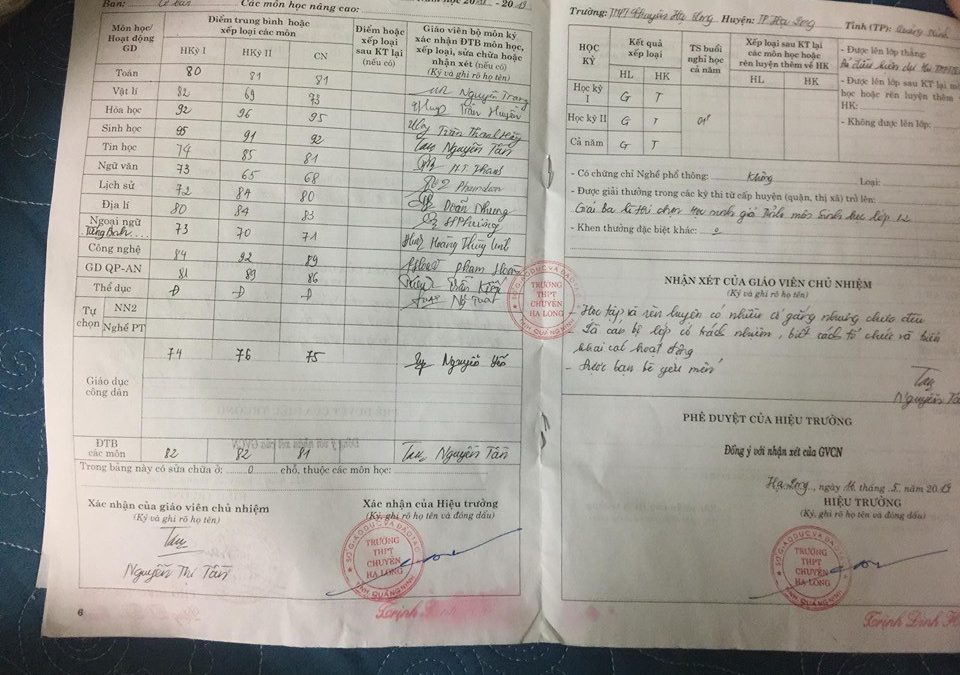 Ban: Cơ bản Các môn học nâng cao:
Môn học/ Hoạt động GD
Điểm trung bình hoặc xếp loại các môn
HKỳ I HKỳ II CN
Điểm hoặc xếp loại sau KT lại (nếu có)
Giáo viên bộ môn ký xác nhận ĐTB môn học, sửa chữa hoặc nhận xét (nếu có)
(Ký và ghi rõ họ tên)
Toán 80 81 81 Nguyễn Trang
Vật lí 82 69 73 Trần Huyền
Hóa học 92 96 95
Sinh học 95 91 92 Nguyễn Tần
Tin học 74 85 81
Ngữ văn 73 65 68
Lịch sử 72 84 80 Đoàn Nhung
Địa lí 80 84 83
Ngoại ngữ Tiếng Anh 73 70 71 Hoàng Thùy Linh
Công nghệ 84 92 89 Phạm
GD QP-AN 81 89 86
Thể dục Đ Đ Đ
Tự chọn
NN2
Nghề PT
Giáo dục công dân 74 76 75 Nguyễn
ĐTB các môn 82 82 81 Nguyễn Tần
Trong bảng này có sửa chữa ở: 0 chỗ, thuộc các môn học:
Xác nhận của giáo viên chủ nhiệm
(Ký và ghi rõ họ tên)
Nguyễn Thị Tần
Xác nhận của Hiệu trưởng
(Ký, ghi rõ họ tên và đóng dấu)
SỞ GIÁO DỤC VÀ ĐÀO TẠO
TRƯỜNG THPT CHUYÊN HẠ LONG
TỈNH QUẢNG NINH
6
Trịnh Đình
Trường: THPT Chuyên Hạ Long Huyện: TP. Hạ Long Tỉnh (TP): Quảng Ninh
HỌC KỲ
Kết quả xếp loại
HL HK
TS buổi nghỉ học cả năm
Xếp loại sau KT lại các môn học hoặc rèn luyện thêm về HK
HL HK
Học kỳ I G T
Học kỳ II G T
Cả năm G T
- Được lên lớp thẳng:
- Được lên lớp sau KT lại
học hoặc rèn luyện thêm
HK:
- Không được lên lớp:
- Có chứng chỉ Nghề phổ thông: Không Loại:
- Được giải thưởng trong các kỳ thi từ cấp huyện (quận, thị xã) trở lên:
Giải Ba kì thi chọn học sinh giỏi Tỉnh môn Sinh học lớp 12
- Khen thưởng đặc biệt khác: 0
NHẬN XÉT CỦA GIÁO VIÊN CHỦ NHIỆM
(Ký và ghi rõ họ tên)
- Học tập và rèn luyện có nhiều cố gắng nhưng chưa đều
- Là cán bộ lớp có trách nhiệm, biết cách tổ chức và triển
khai các hoạt động
- Được bạn bè yêu mến
Nguyễn
PHÊ DUYỆT CỦA HIỆU TRƯỞNG
Đồng ý với nhận xét của GVCN
Hạ Long, ngày tháng 5. năm 2019
HIỆU TRƯỞNG
(Ký, ghi rõ họ tên và đóng dấu)
SỞ GIÁO DỤC VÀ ĐÀO TẠO
TRƯỜNG THPT CHUYÊN HẠ LONG
TỈNH QUẢNG NINH
Trịnh Đình